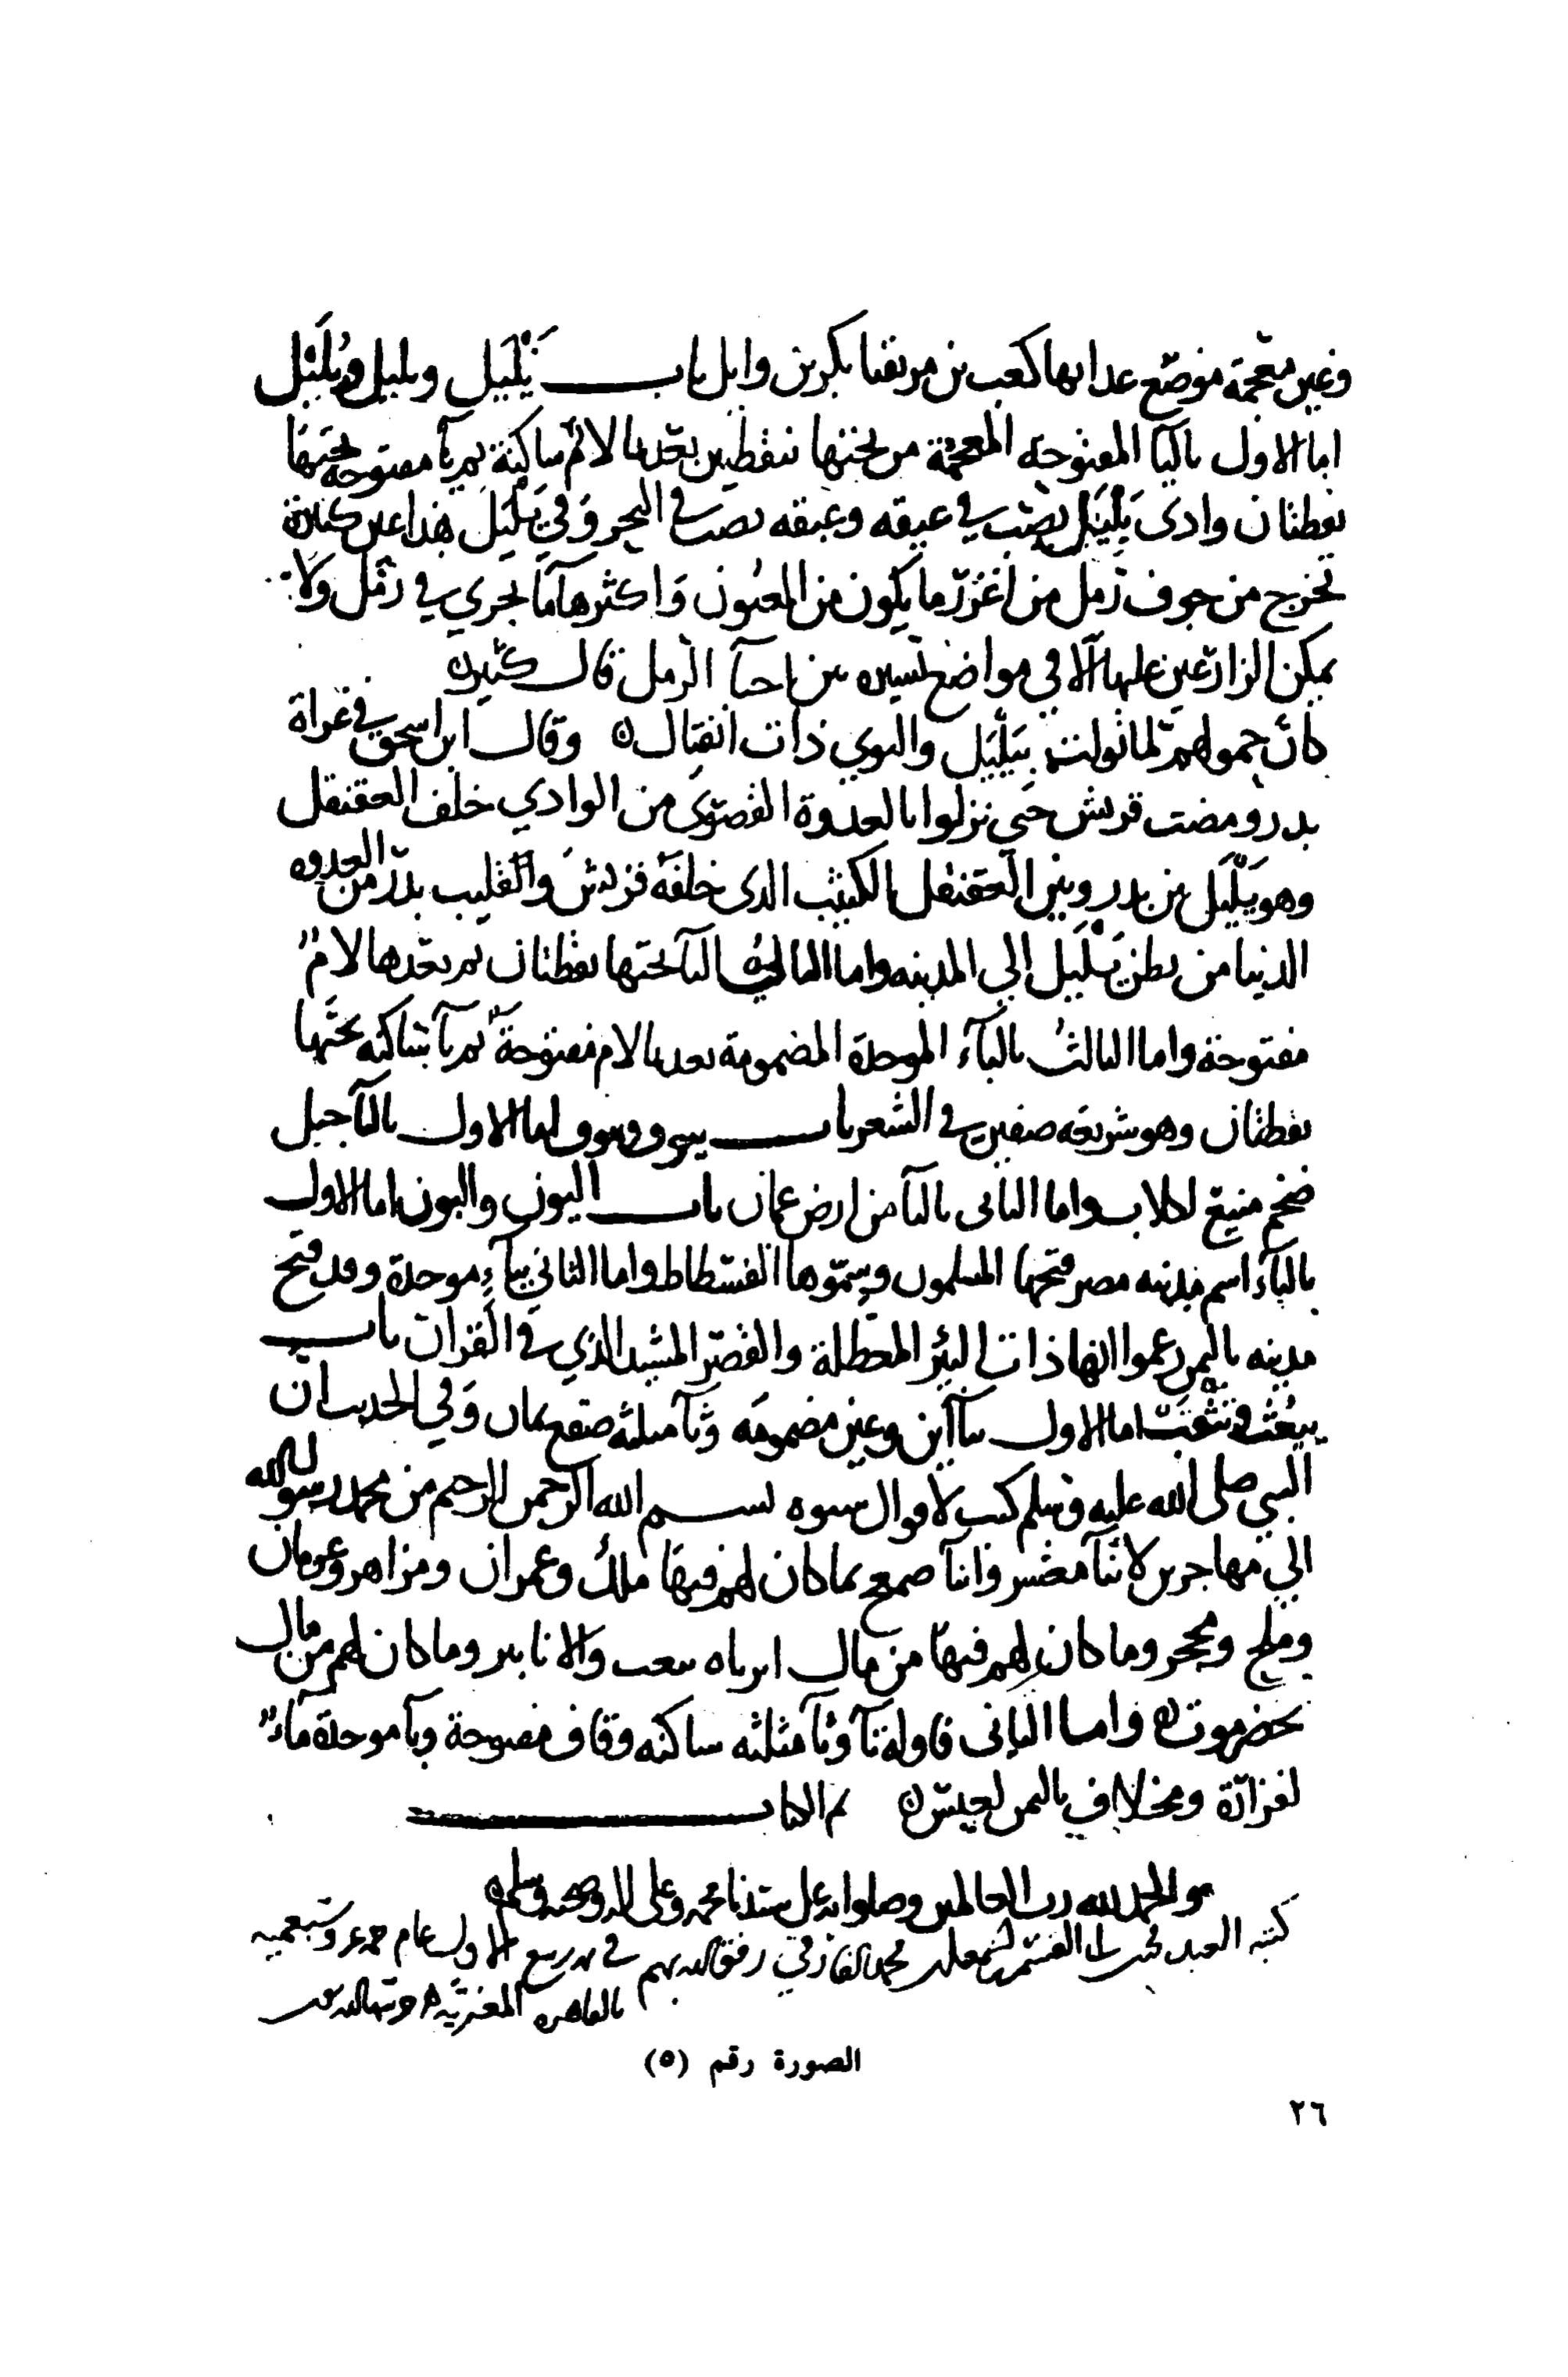 وغين معجمة موضع عدا بها كعب بن مر بقنا بكر بن وايل باب يَلْيَل وبليل وبُلَيْل
اما الاول بالياء المفتوحه المعجمة من تحتها بنقطتين بعدها لامٌ ساكنة ثم يآ مفتوحه تحتها
نقطتان وادى يَلْيَل يصب في عيقه وعيقه تصب في البحر وفي يَلْيَل هذا عين كبيرة
تخرج من جوف رمل من اغزر ما يكون من العيون واكثرها مآ تجري في رمل ولا
يمكن الزارعين عليها الا في مواضع يسيره بين احنآ الرمل قال كثير
كأن حمولهم لما تولت بيَلْيَل والنوي ذات انفتال وقال ابن اسحق في غزاة
بدر ومضت قريش حتى نزلوا بالعدوة القصوى من الوادي خلف العقنقل
وهو يَلْيَل بين بدر وبين العقنقل الكثيب الذى خلفه قريش والقليب ببدر من العدوه
الدنيا من بطن يَلْيَل إلي المدينه واما الثاني اليآ تحتها نقطتان ثم بعدها لامٌ
مفتوحة واما الثالثُ بالبآء الموحدة المضمومة بعدها لام مفتوحة ثم يآ ساكنه تحتها
نقطتان وهو شريعه صفين في الشعر باب واما الاول باليآ جبل
ضخم منيع لكلاب واما الثانى بالبآ من ارض عمان باب اليون والبون اما الاول
بالياء اسم مدينه مصر فتحها المسلمون وسموها الفسطاط واما الثاني بباءٍ موحدة وقد فتح
مدينه باليمن زعموا انها ذات البئر المعطلة والقصر المشيد الذي في القران باب
يبعُث وتثقَب اما الاول بيآ اين وعين مضمومه وثآ مثلثه صقع يمان وفي الحديث ان
النبي صلى الله عليه وسلم كتب لاقوال شبوه بسم الله الرحمن الرحيم من محمد رسول الله
الي مهاجرين لابنآ معشر وابنآ ضمعج بما كان لهم فيها ملك وعمران ومزاهر وعرمان
وملح ومحجر وما كان لهم فيها من مال يبعث والانابير وما كان لهم من مال
بحضرموت واما الثانى فاوله تآ وثآ مثلثه ساكنه وقاف مفتوحة وبآ موحدة مآءٌ
لفزازة ومخلاف باليمن لعبس تم الكتاب
والحمد لله رب العالمين وصلواته على سيدنا محمد وعلى اله وصحبه وسلم
كتبه العبد محمد الفارقي رفق الله بهم في ربيع الاول عام وسبعميه
بالقاهره المعزيه
الصورة رقم (٥)
٢٦